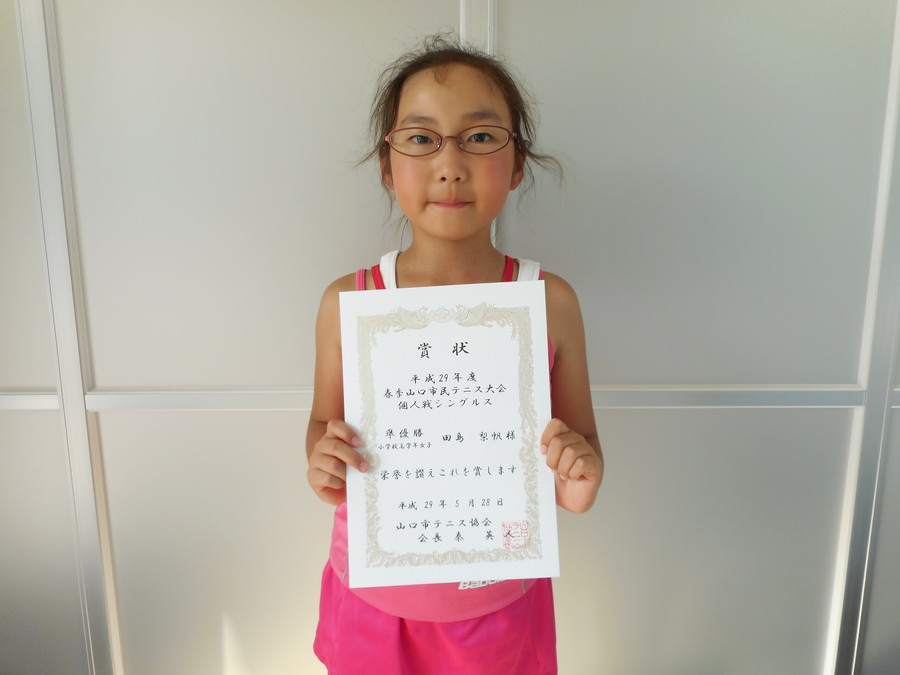 賞 状
平成29年度
春季山口市民テニス大会
個人戦シングルス
準優勝
小学校高学年女子
田島 梨帆 様
栄誉を讃えこれを賞します
平成 29 年 5 月 28 日
山口市テニス協会
会長 泰 英